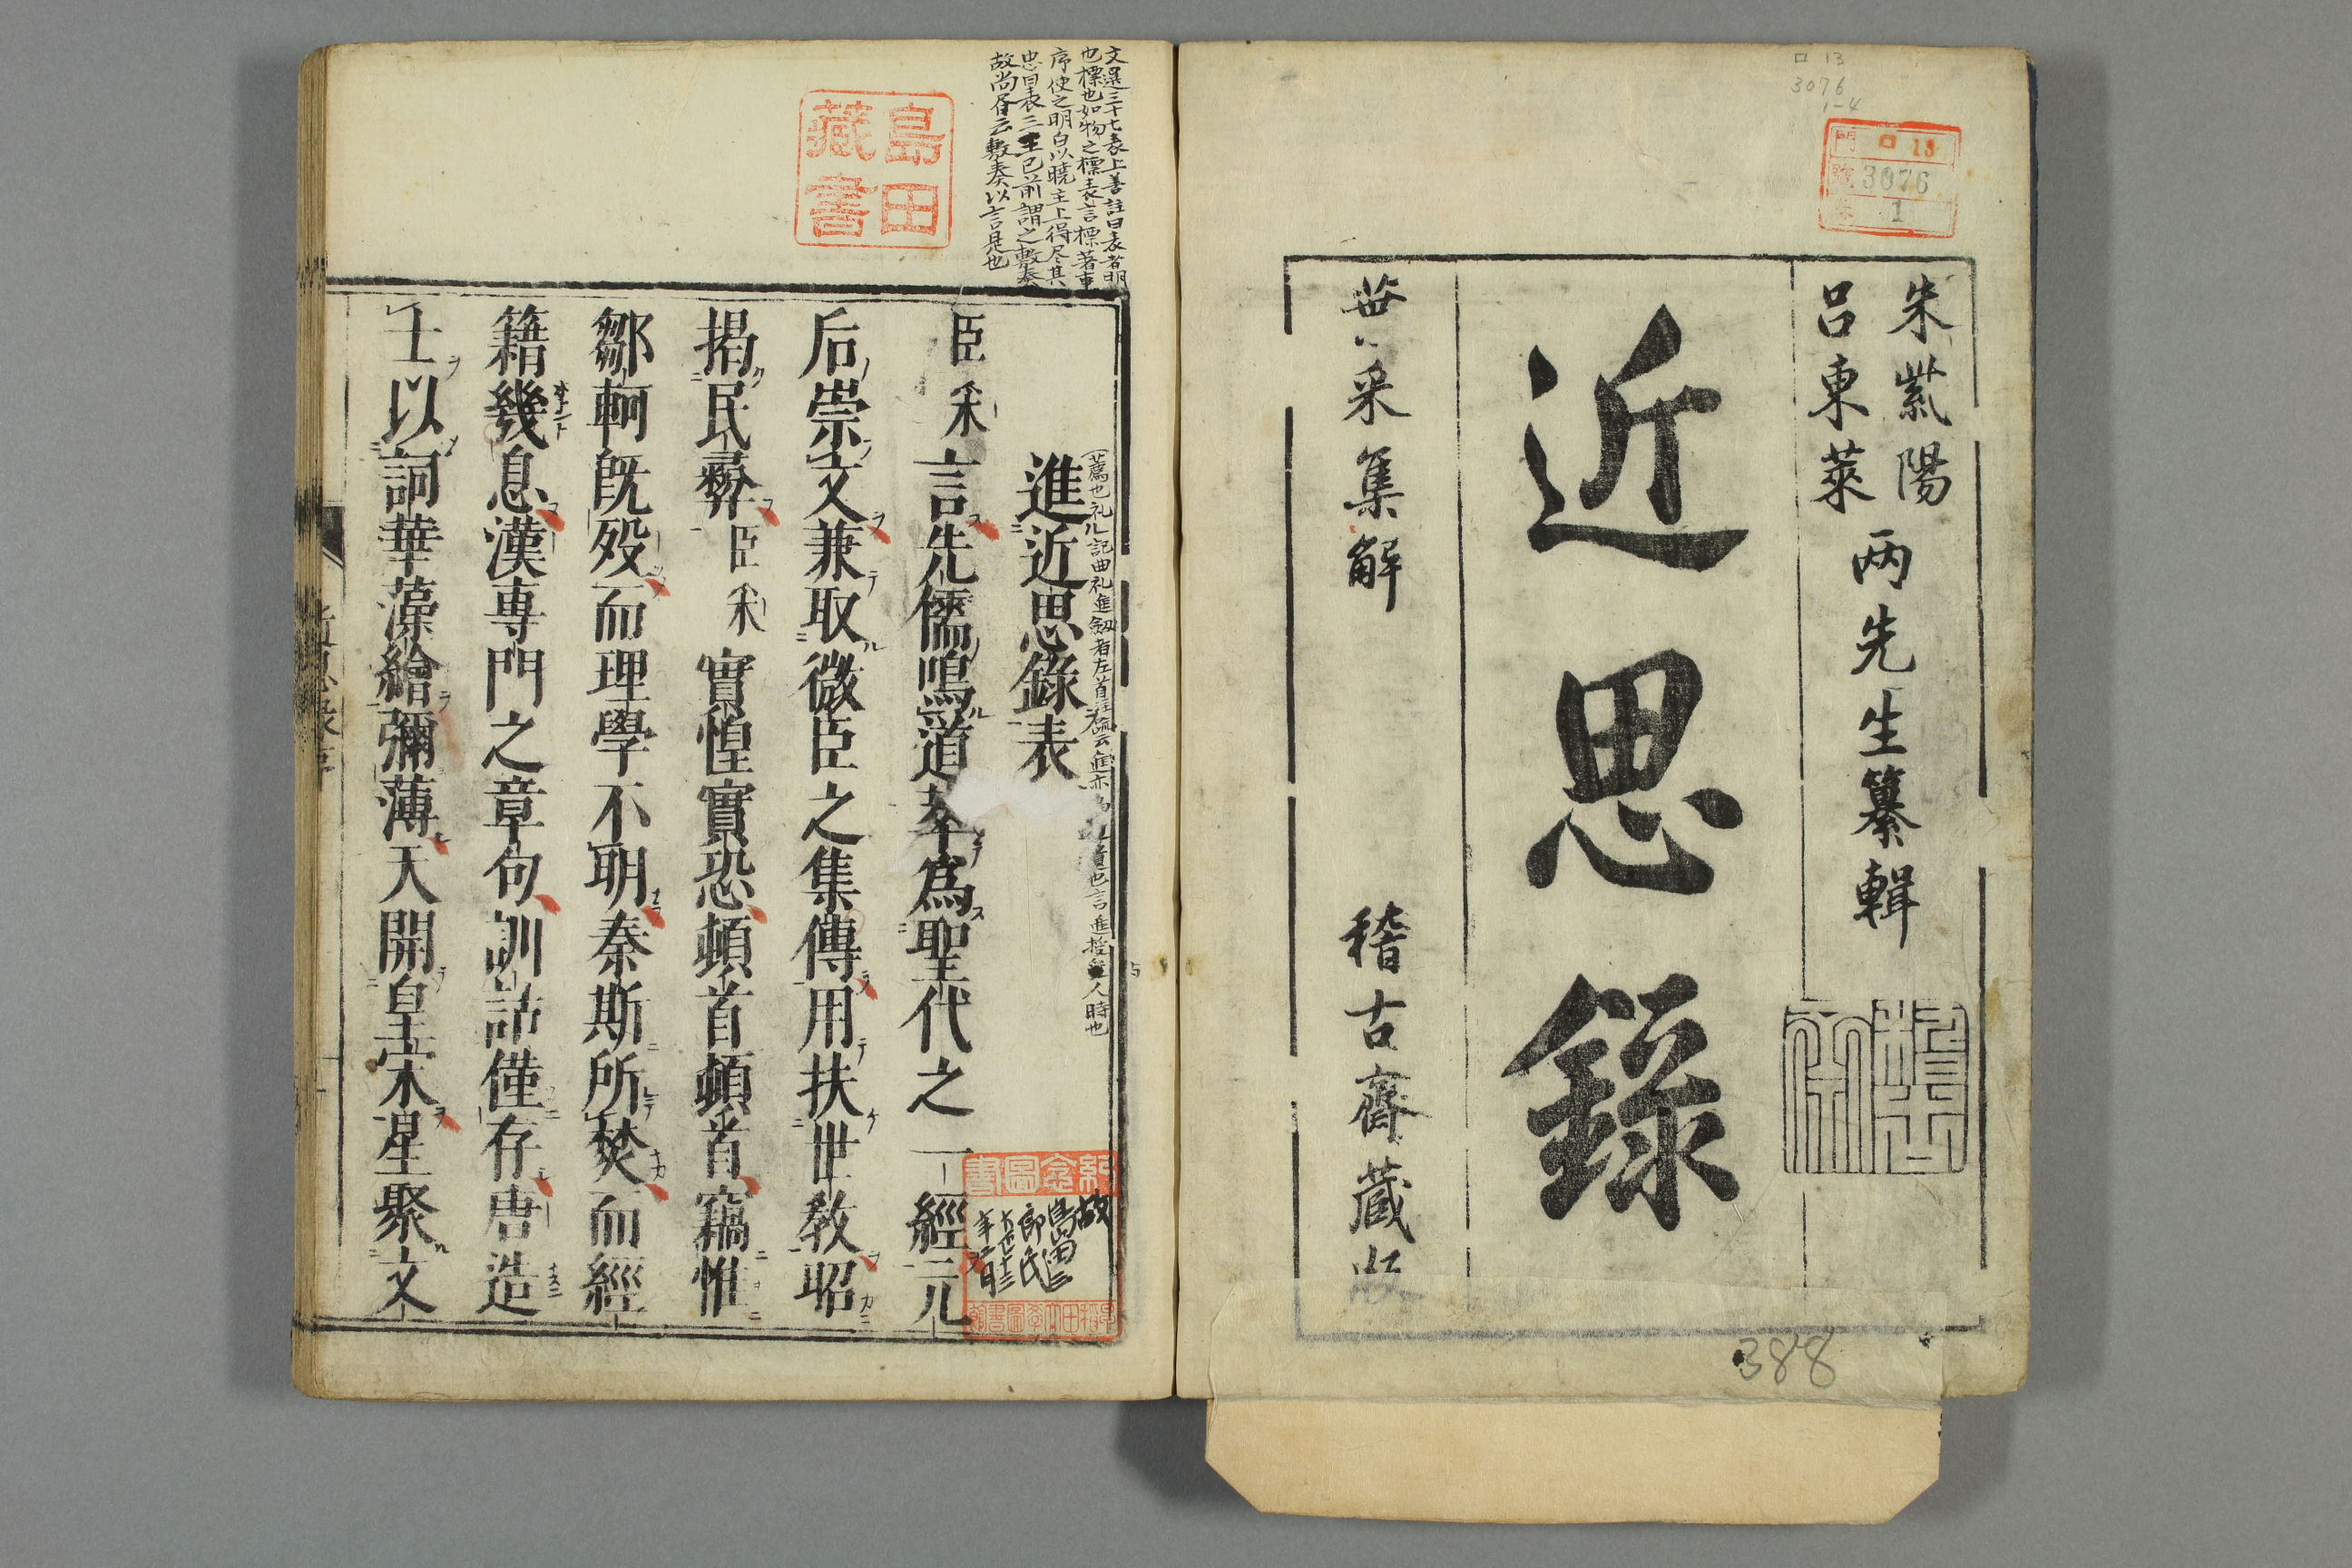 口 13
3076
1-4
門 口 13
號 3076
卷 1
朱紫陽
呂東萊
两先生纂輯
近思錄
采集解
稽古齋藏
388
文選三十七表上善註曰表者明
也標也如物之標表言標著事
序使之明白以曉主上得尽其
忠曰表三王已前謂之敷奏
故尚書云敷奏以言是也
島田
藏書
薦也礼ル記曲礼進劔者左首
進近思錄表
臣采言先儒鳴道萃爲聖代之一經元
后崇文兼取微臣之集傳用扶世敎昭
揭民彛臣采實惶實恐頓首頓首竊惟
鄒軻旣殁而理學不明秦斯所焚而經
籍幾息漢專門之章句訓詁僅存唐造
士以詞華藻繪彌薄天開皇宋星聚文
紀念圖書
故
島田三
郎氏
大正十三
早稻田大學圖書館